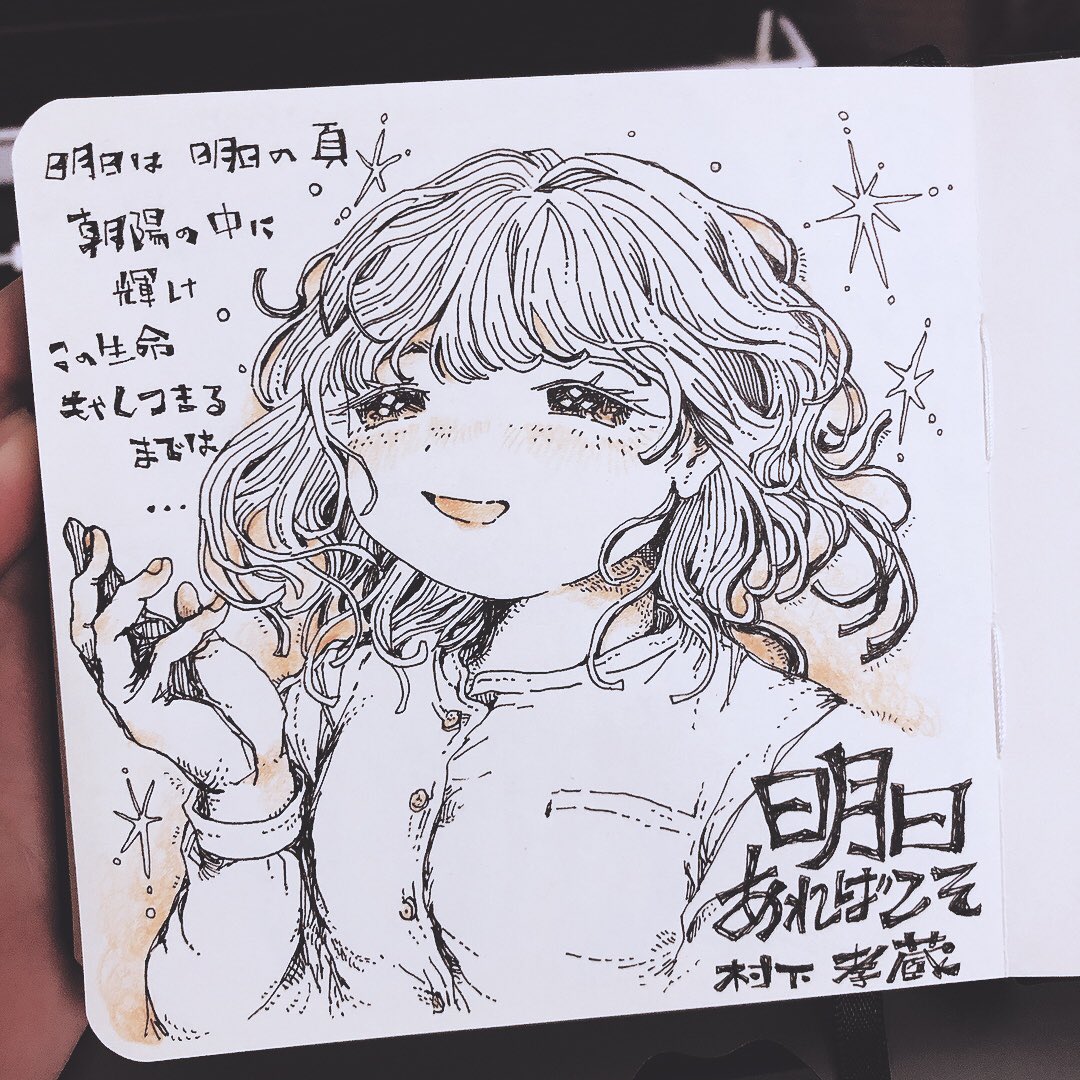 明日は 明日の頁
朝陽の中に
輝け
この生命
もやしつきる
までは
...
明日
あればこそ
村下 孝蔵